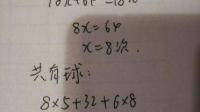 8x=64
x=8次.
共有球:
8×5+32+6×8